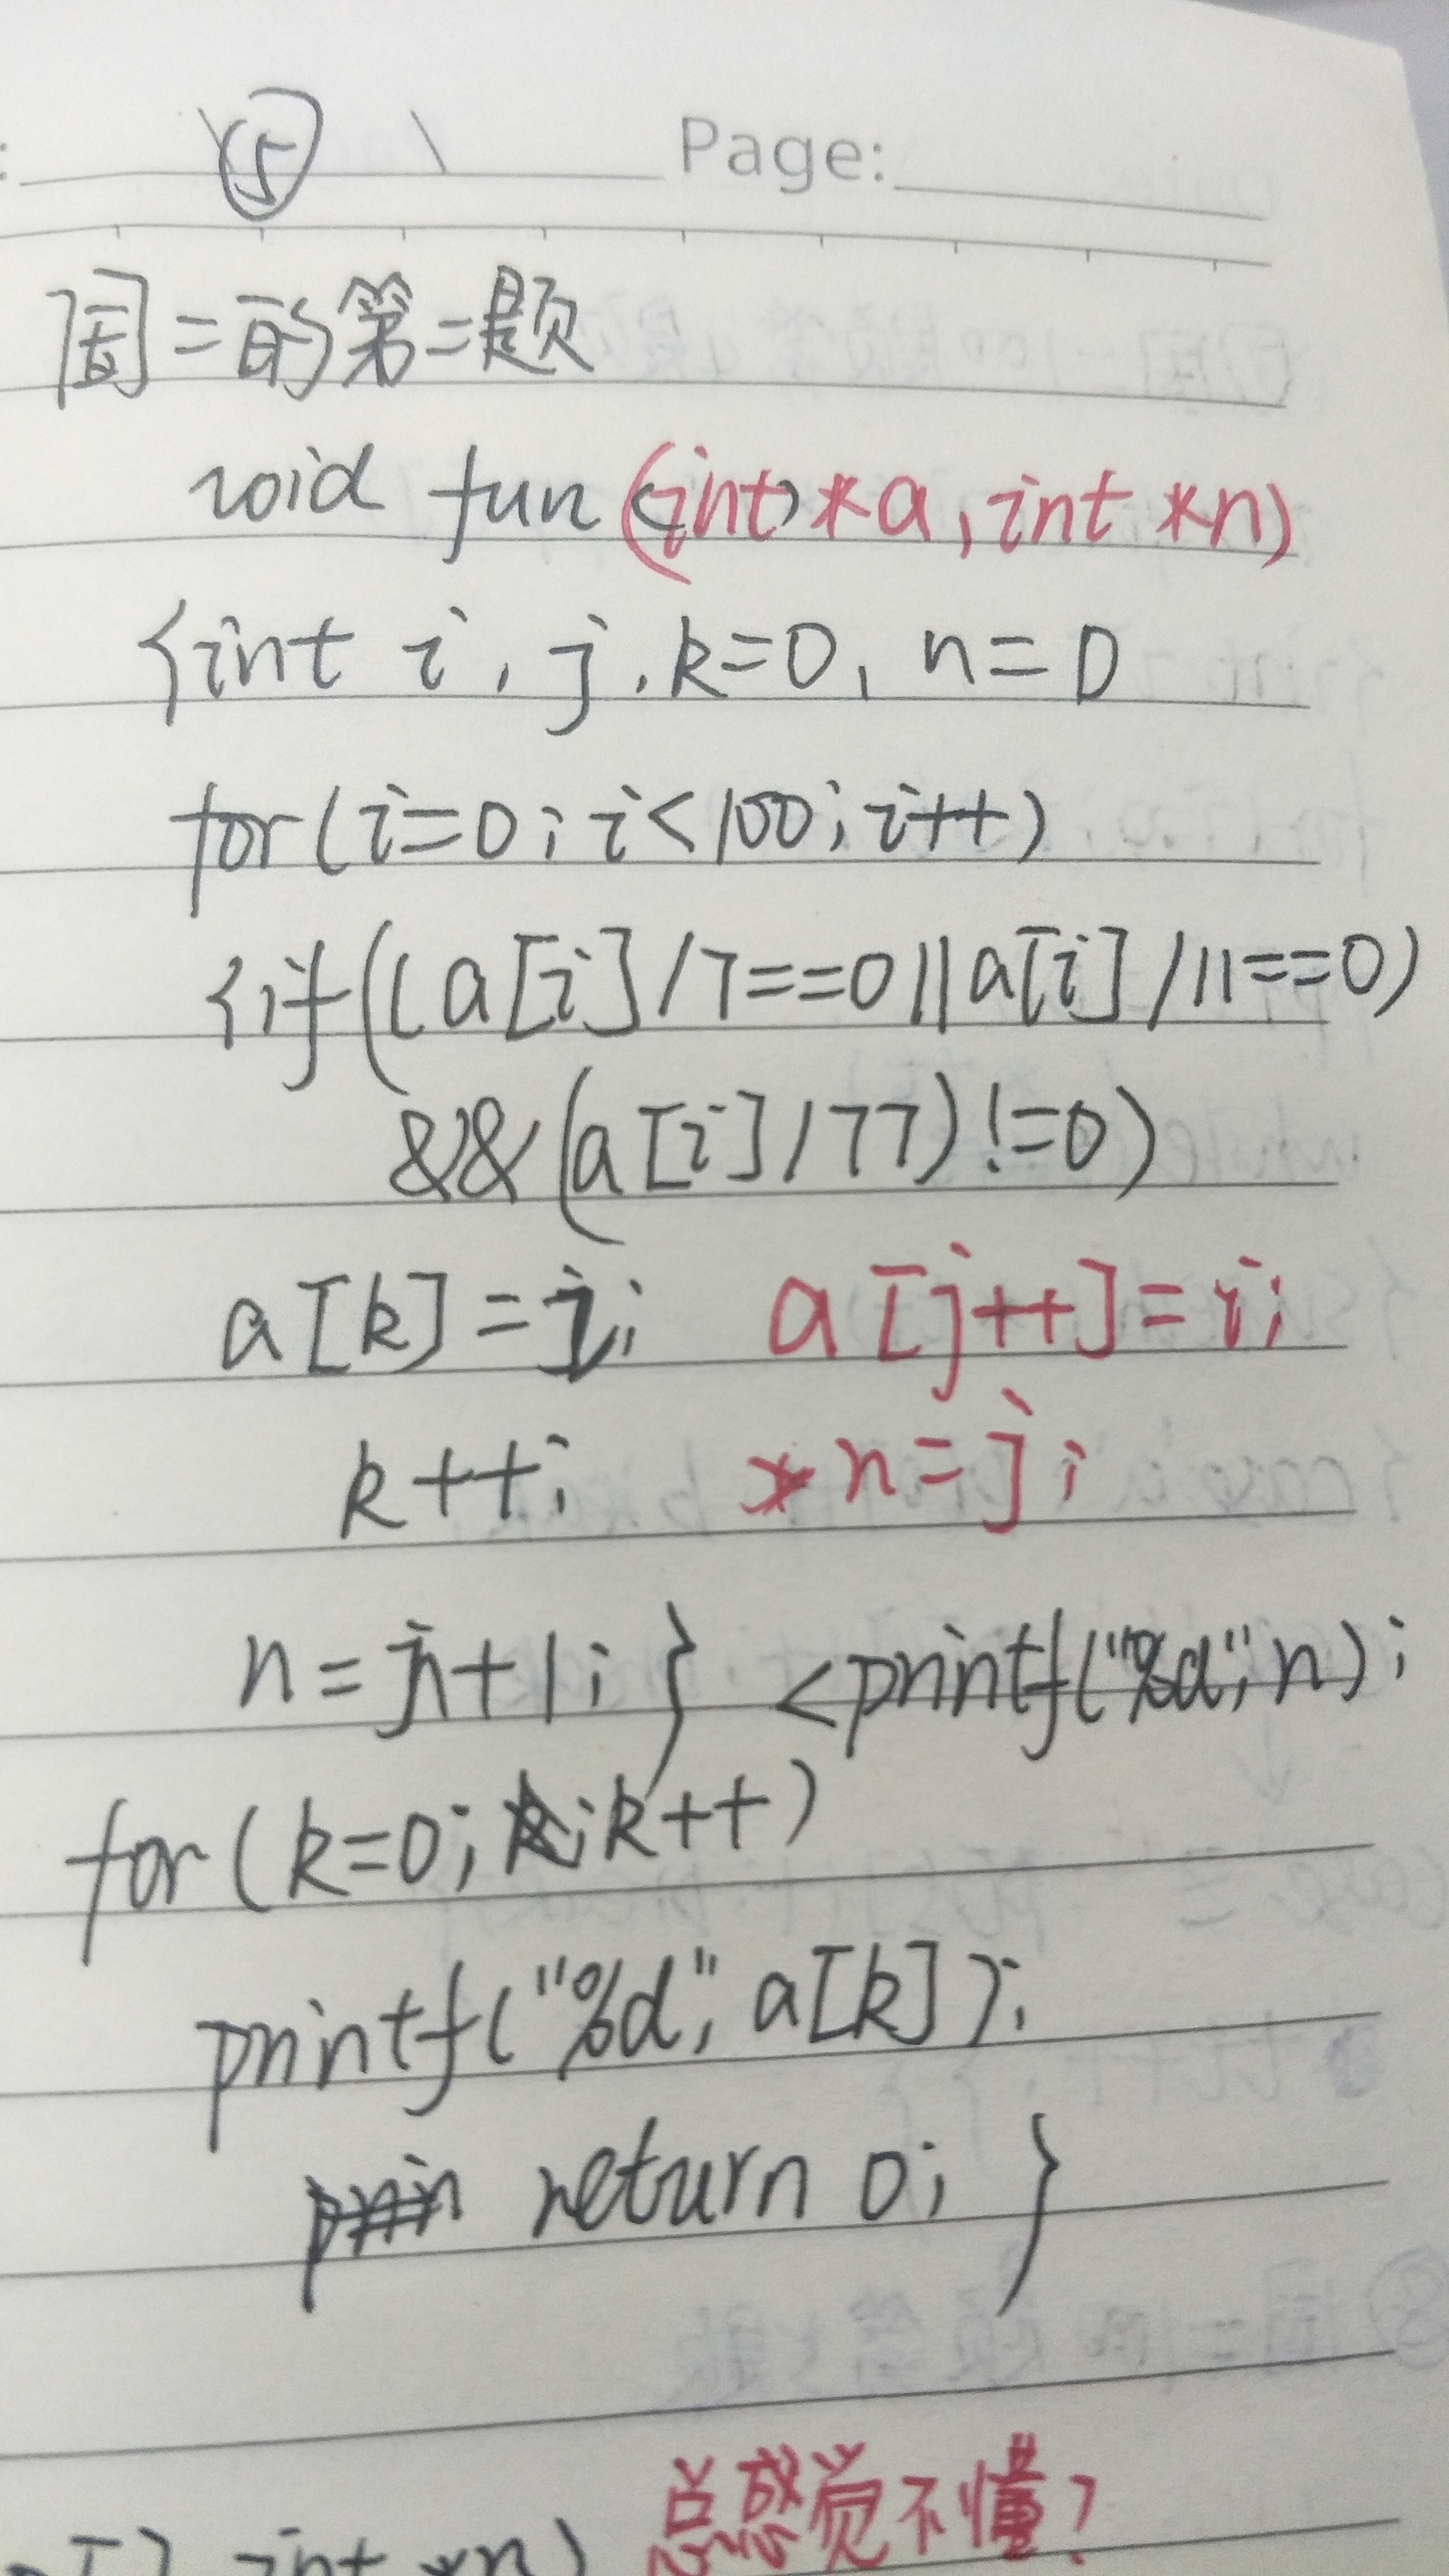 ⑤ Page:
周二的第二题
void fun (int *a, int *n)
{int i, j, k=0, n=0
for(i=0; i<100; i++)
{if((a[i]/7==0||a[i]/11==0)
&&(a[i]/77)!=0)
a[k]=i; a[j++]=i;
k++; *n=j;
n=n+1; } <printf("%d", n);
for(k=0; ; k++)
printf("%d", a[k]);
return 0; }
总感觉不懂?
int *n)